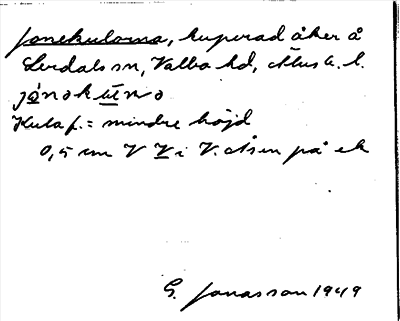 Jonekulorna, kuperad åker å
Lerdals sn, Valbo hd, Älvsb. l.
Kula f. = mindre höjd
0,5 cm V V i V. Åsen på ek
G. Jonasson 1949